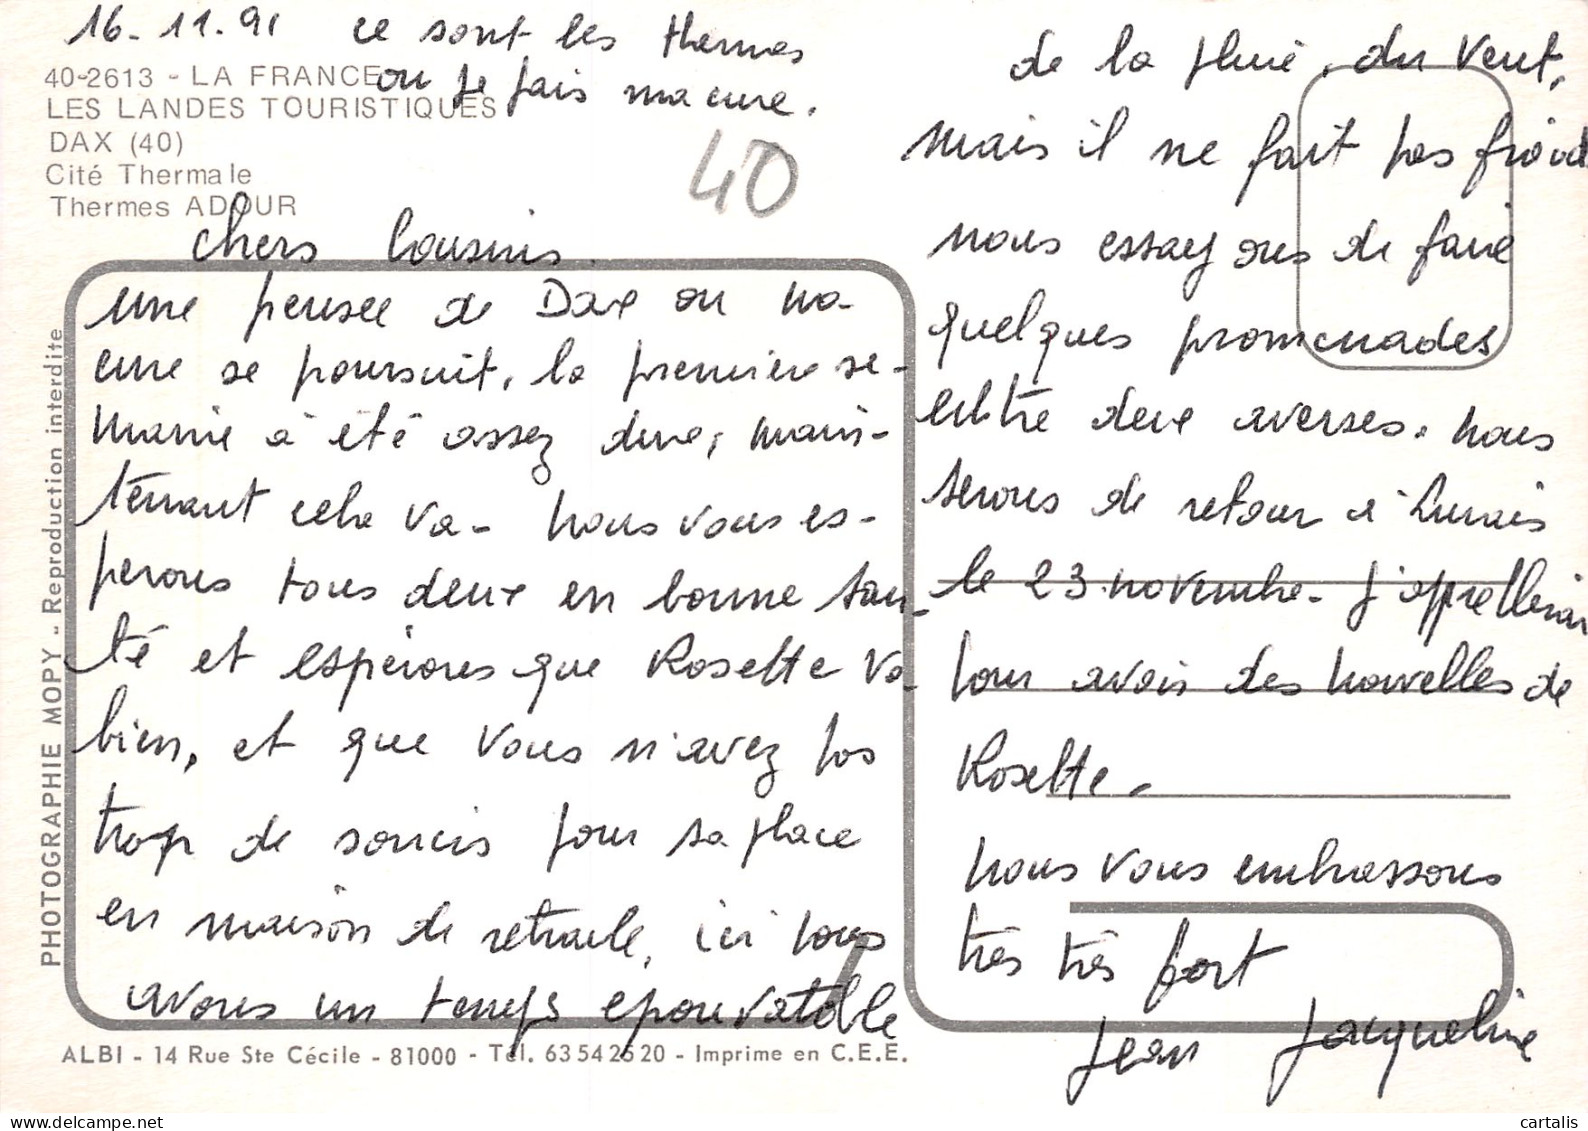 16-11.91 ce sont les thermes
ou je fais ma cure.
40-2613 - LA FRANCE
LES LANDES TOURISTIQUES
DAX (40)
Cité Thermale
Thermes ADOUR
40
chers Cousins.
une pensée de Dax ou ma
cure se poursuit, la première se-
maine à été assez dure, main-
tenant cela va - nous vous es-
perons tous deux en bonne san-
té et espérons que Rosette va
bien, et que vous n'avez pas
trop de soucis pour sa place
en maison de retraite, ici nous
avons un temps epouvatable
de la pluie, du vent,
mais il ne fait pas froid
nous essayons de faire
quelques promenades
entre deux averses. nous
serons de retour à
le 23 novembre - J'appellerai
pour avoir des nouvelles de
Rosette -
nous vous embrassons
très très fort
Jean Jacqueline
PHOTOGRAPHIE MOPY - Reproduction interdite
ALBI - 14 Rue Ste Cécile - 81000 - Tél. 63 54 25 20 - Imprime en C.E.E.
cartalis